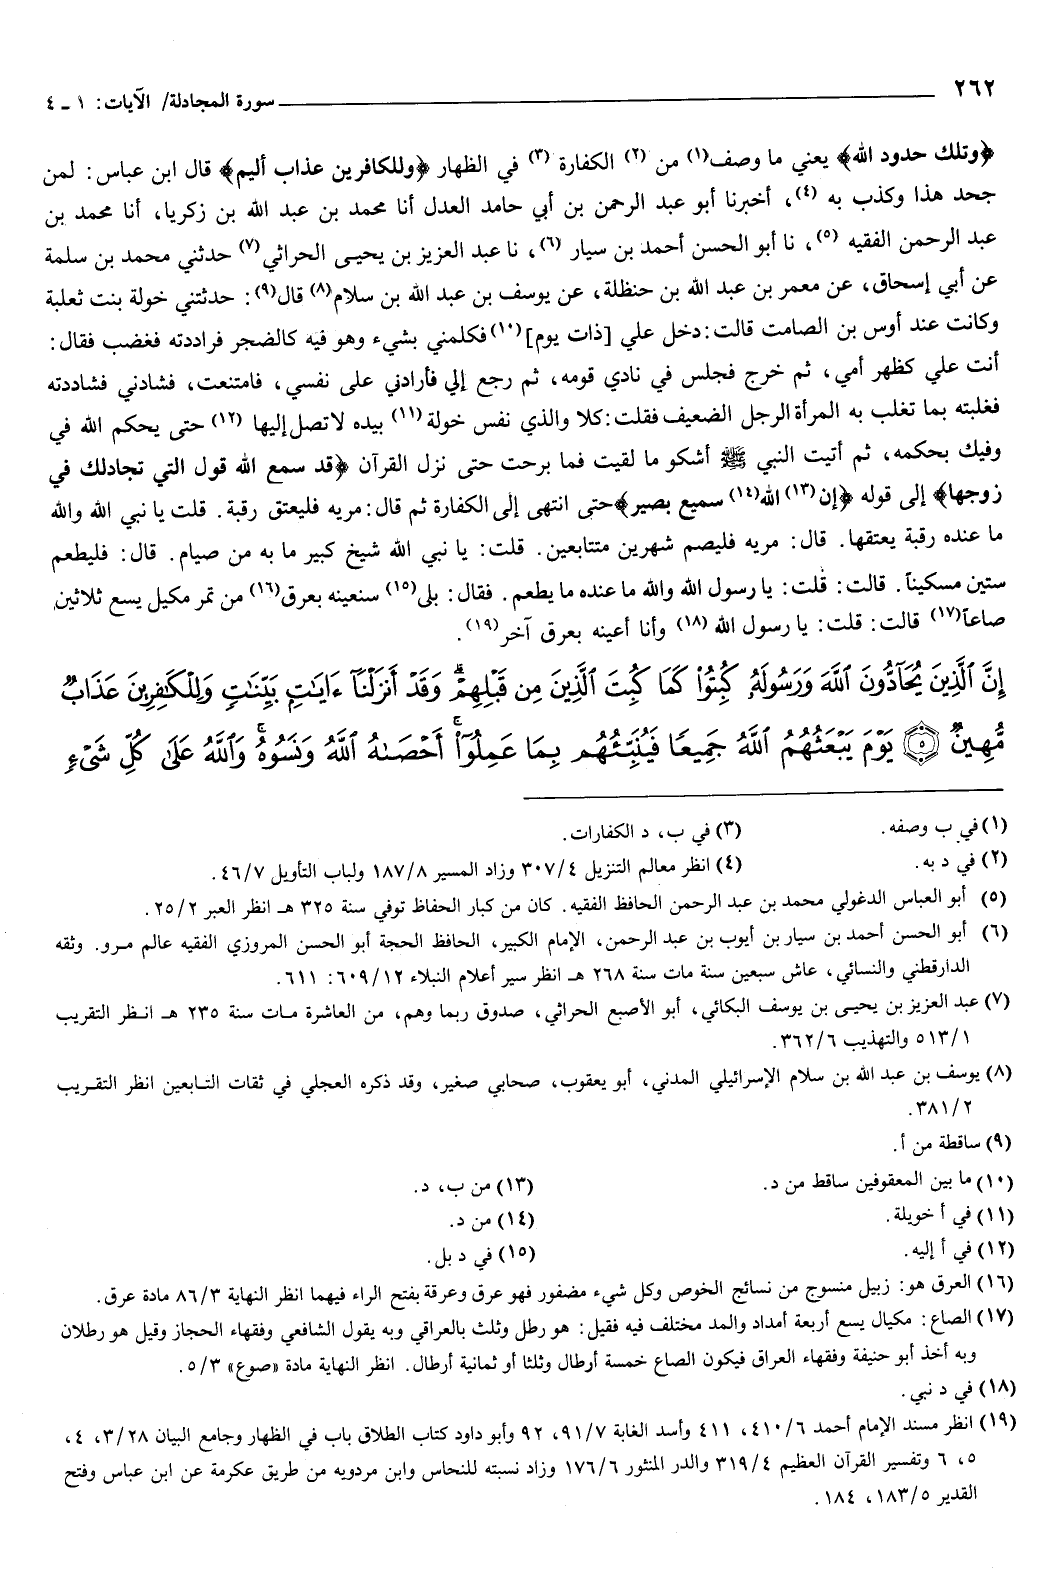 ٢٦٢ سورة المجادلة/ الآيات: ١ ـ ٤
﴿وتلك حدود الله﴾ يعني ما وصف(١) من (٢) الكفارة (٣) في الظهار ﴿وللكافرين عذاب أليم﴾ قال ابن عباس: لمن
جحد هذا وكذب به (٤)، أخبرنا أبو عبد الرحمن بن أبي حامد العدل أنا محمد بن عبد الله بن زكريا، أنا محمد بن
عبد الرحمن الفقيه (٥)، نا أبو الحسن أحمد بن سيار (٦)، نا عبد العزيز بن يحيى الحراثي(٧) حدثني محمد بن سلمة
عن أبي إسحاق، عن معمر بن عبد الله بن حنظلة، عن يوسف بن عبد الله بن سلام(٨) قال(٩): حدثتني خولة بنت ثعلبة
وكانت عند أوس بن الصامت قالت: دخل علي [ذات يوم](١٠) فكلمني بشيء وهو فيه كالضجر فراددته فغضب فقال:
أنت علي كظهر أمي، ثم خرج فجلس في نادي قومه، ثم رجع إلي فأرادني على نفسي، فامتنعت، فشادني فشاددته
فغلبته بما تغلب به المرأة الرجل الضعيف فقلت: كلا والذي نفس خولة (١١) بيده لا تصل إليها (١٢) حتى يحكم الله في
وفيك بحكمه، ثم أتيت النبي ﷺ أشكو ما لقيت فما برحت حتى نزل القرآن ﴿قد سمع الله قول التي تجادلك في
زوجها﴾ إلى قوله ﴿إن (١٣) الله(١٤) سميع بصير﴾ حتى انتهى إلى الكفارة ثم قال: مريه فليعتق رقبة. قلت يا نبي الله والله
ما عنده رقبة يعتقها. قال: مريه فليصم شهرين متتابعين. قلت: يا نبي الله شيخ كبير ما به من صيام. قال: فليطعم
ستين مسكيناً. قالت: قلت: يا رسول الله والله ما عنده ما يطعم. فقال: بلى(١٥) سنعينه بعرق(١٦) من تمر مكيل يسع ثلاثين
صاعاً(١٧) قالت: قلت: يا رسول الله (١٨) وأنا أعينه بعرق آخر(١٩).
إِنَّ ٱلَّذِينَ يُحَآدُّونَ ٱللَّهَ وَرَسُولَهُۥ كُبِتُوا۟ كَمَا كُبِتَ ٱلَّذِينَ مِن قَبْلِهِمْ ۚ وَقَدْ أَنزَلْنَآ ءَايَٰتٍۭ بَيِّنَٰتٍ ۚ وَلِلْكَٰفِرِينَ عَذَابٌ
مُّهِينٌ ٥ يَوْمَ يَبْعَثُهُمُ ٱللَّهُ جَمِيعًا فَيُنَبِّئُهُم بِمَا عَمِلُوٓا۟ ۚ أَحْصَىٰهُ ٱللَّهُ وَنَسُوهُ ۚ وَٱللَّهُ عَلَىٰ كُلِّ شَىْءٍ
(١) في ب وصفه. (٣) في ب، د الكفارات.
(٢) في د به. (٤) انظر معالم التنزيل ٣٠٧/٤ وزاد المسير ١٨٧/٨ ولباب التأويل ٤٦/٧.
(٥) أبو العباس الدغولي محمد بن عبد الرحمن الحافظ الفقيه. كان من كبار الحفاظ توفي سنة ٣٢٥ هـ انظر العبر ٢٥/٢.
(٦) أبو الحسن أحمد بن سيار بن أيوب بن عبد الرحمن، الإمام الكبير، الحافظ الحجة أبو الحسن المروزي الفقيه عالم مرو. وثقه
الدارقطني والنسائي، عاش سبعين سنة مات سنة ٢٦٨ هـ انظر سير أعلام النبلاء ٦٠٩/١٢: ٦١١.
(٧) عبد العزيز بن يحيى بن يوسف البكائي، أبو الأصبع الحراثي، صدوق ربما وهم، من العاشرة مات سنة ٢٣٥ هـ انظر التقريب
٥١٣/١ والتهذيب ٣٦٢/٦.
(٨) يوسف بن عبد الله بن سلام الإسرائيلي المدني، أبو يعقوب، صحابي صغير، وقد ذكره العجلي في ثقات التابعين انظر التقريب
٣٨١/٢.
(٩) ساقطة من أ.
(١٠) ما بين المعقوفين ساقط من د. (١٣) من ب، د.
(١١) في أ خويلة. (١٤) من د.
(١٢) في أ إليه. (١٥) في د بل.
(١٦) العرق هو: زبيل منسوج من نسائج الخوص وكل شيء مضفور فهو عرق وعرقة بفتح الراء فيهما انظر النهاية ٨٦/٣ مادة عرق.
(١٧) الصاع: مكيال يسع أربعة أمداد والمد مختلف فيه فقيل: هو رطل وثلث بالعراقي وبه يقول الشافعي وفقهاء الحجاز وقيل هو رطلان
وبه أخذ أبو حنيفة وفقهاء العراق فيكون الصاع خمسة أرطال وثلثا أو ثمانية أرطال. انظر النهاية مادة «صوع» ٥/٣.
(١٨) في د نبي.
(١٩) انظر مسند الإمام أحمد ٤١٠/٦، ٤١١ وأسد الغابة ٩١/٧، ٩٢ وأبو داود كتاب الطلاق باب في الظهار وجامع البيان ٣/٢٨، ٤،
٥، ٦ وتفسير القرآن العظيم ٣١٩/٤ والدر المنثور ١٧٦/٦ وزاد نسبته للنحاس وابن مردويه من طريق عكرمة عن ابن عباس وفتح
القدير ١٨٣/٥، ١٨٤.